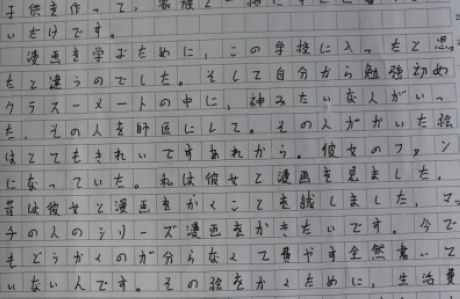 子供を作って、家族と一緒に
いだけです。
漫画を学ぶために、この学校に入ったと思っ
たと違うのでした。そして自分から勉強初め
クラスーメートの中に、神みたいな人がいっ
た。その人を師匠にして。その人がかいた絵
はとてもきれいですあれから。彼女のファン
になっていた。私は彼女と漫画を見ました。
昔は彼女と漫画をかくことを試しました。マ
チの人のシリーズ漫画をかきたいです。今で
もどうかくのが分らなくて費やす全然書いて
いないんです。その絵をかくために、生活費